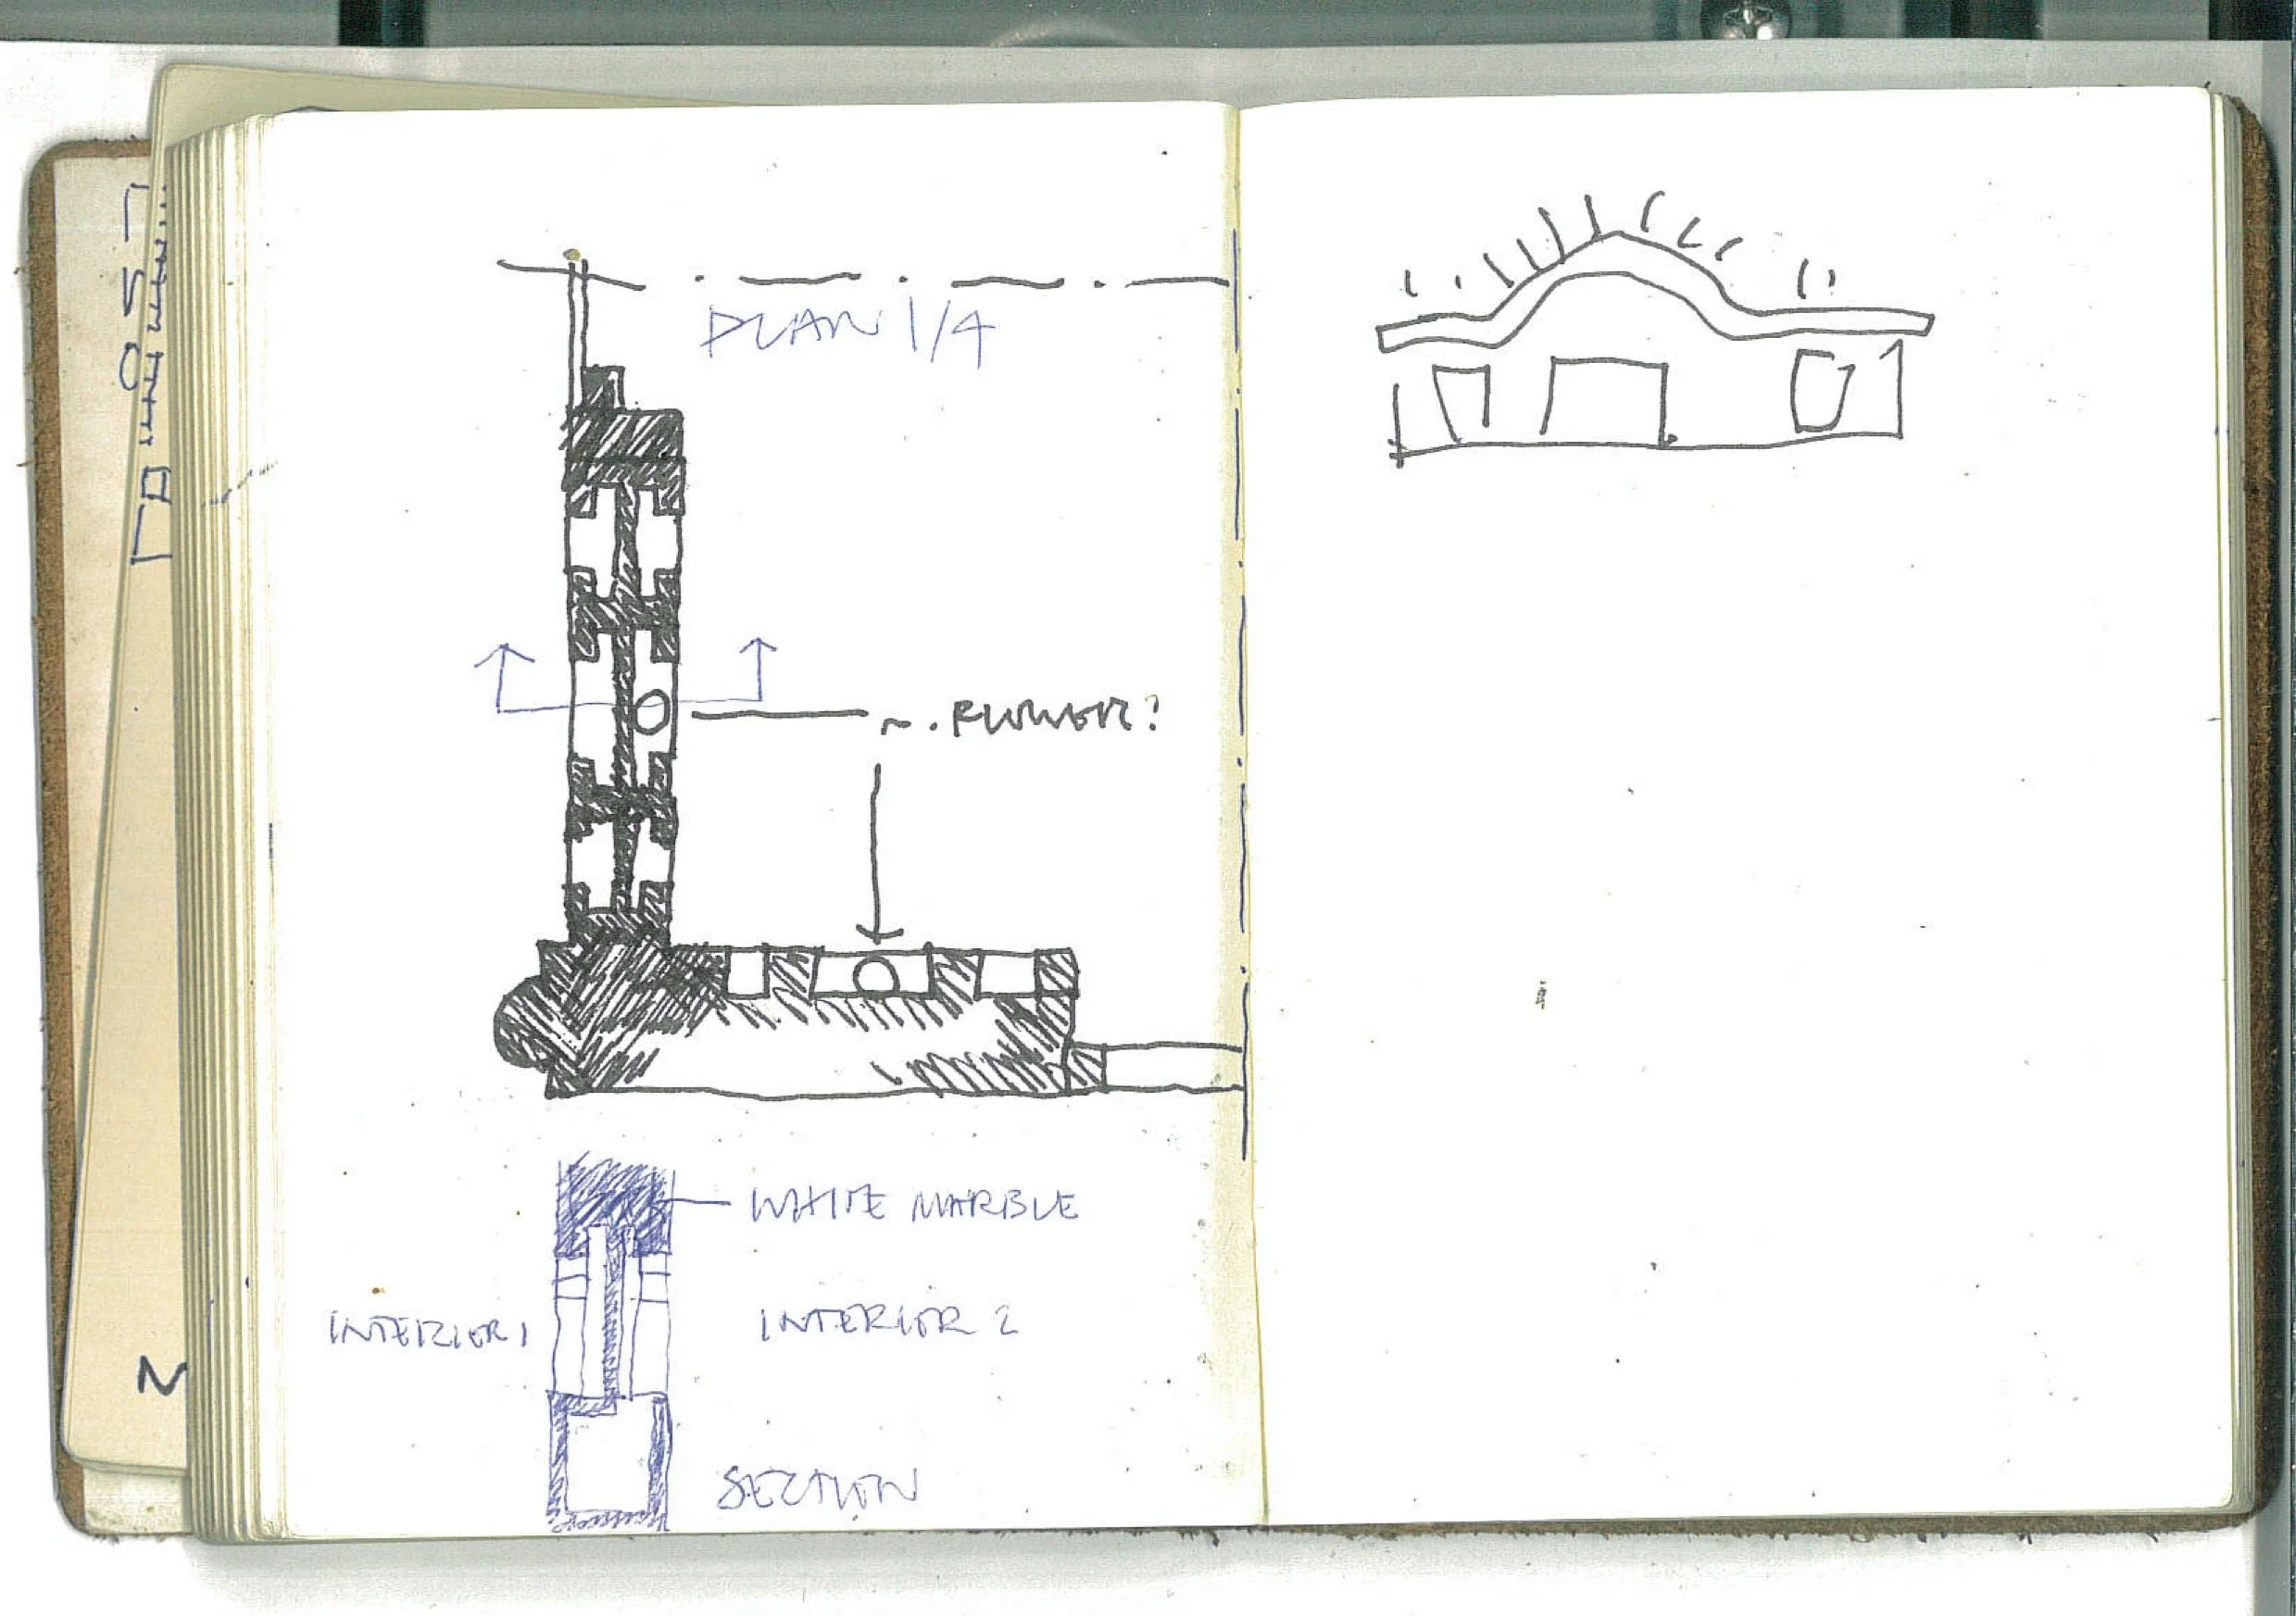 PLAN 1/4
~. FLOWER?
WHITE MARBLE
INTERIOR 1
INTERIOR 2
SECTION